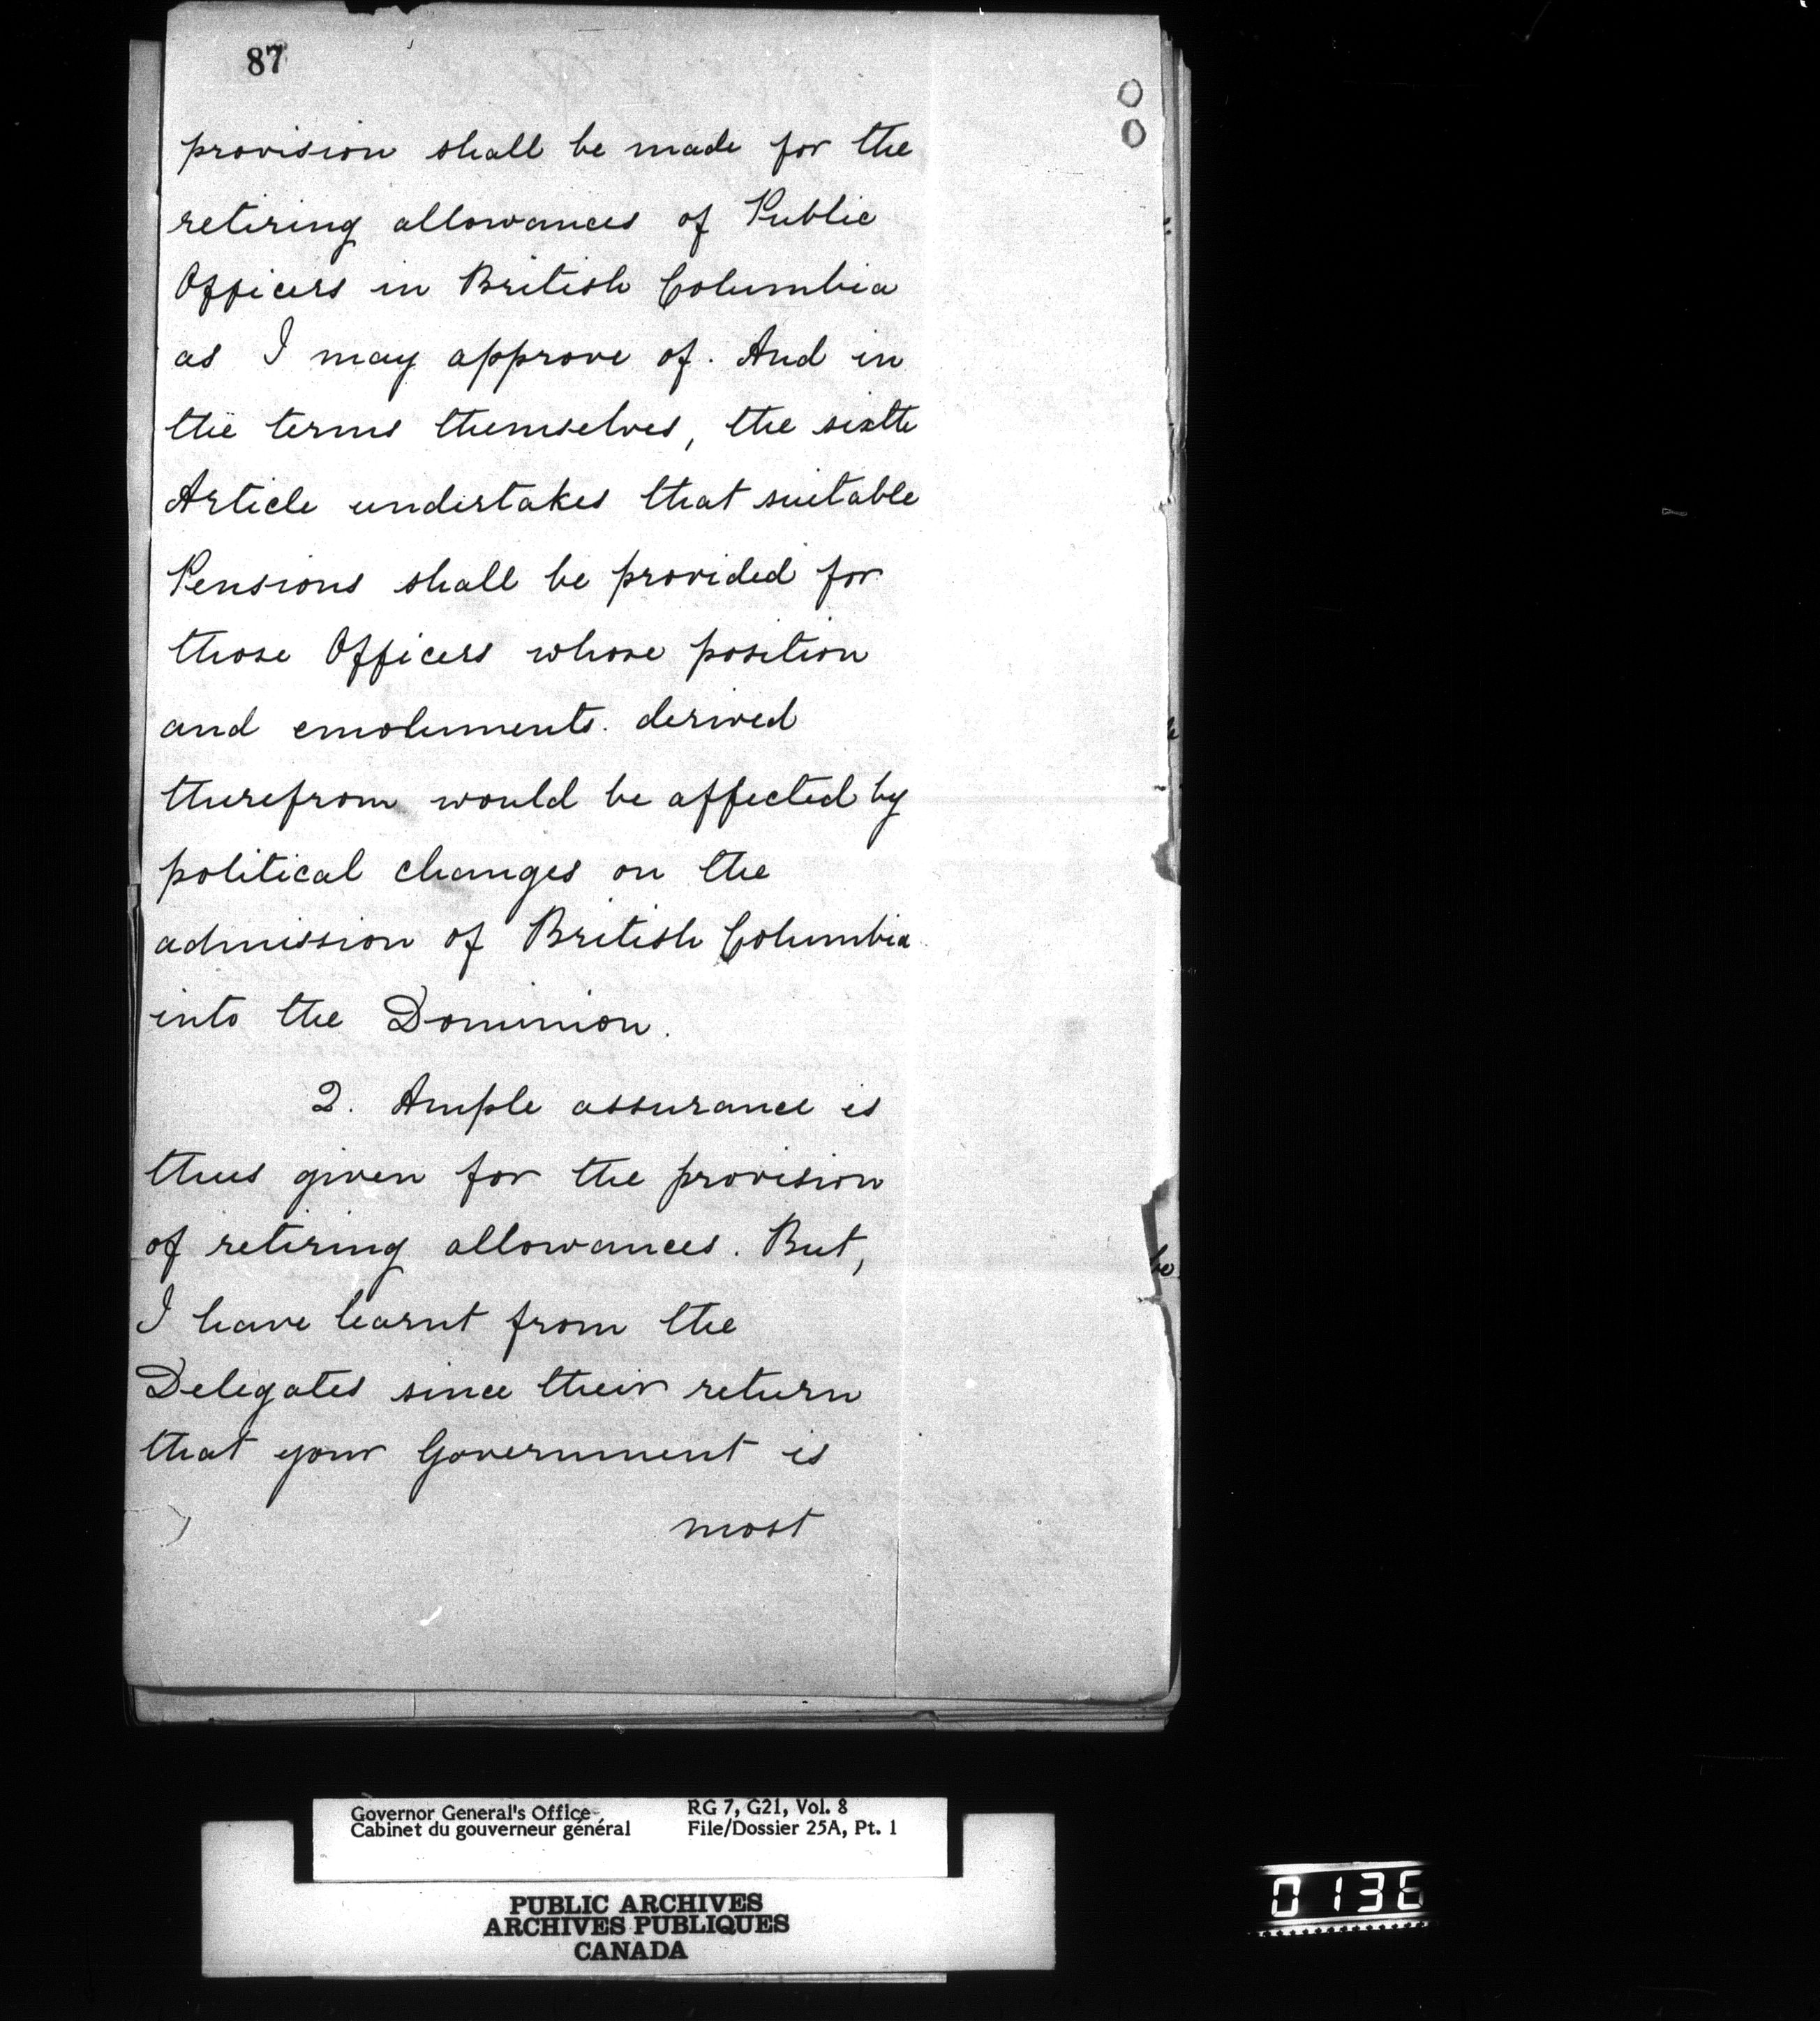 87
provision shall be made for the
retiring allowances of Public
Officers in British Columbia
as I may approve of. And in
the terms themselves, the sixth
Article undertakes that suitable
Pensions shall be provided for
those Officers whose position
and emoluments. derived
therefrom would be affected by
political changes on the
admission of British Columbia
into the Dominion.
2. Ample assurance is
thus given for the provision
of retiring allowances. But,
I have learnt from the
Delegates since their return
that your Government is
most
Governor General's Office
Cabinet du gouverneur général
RG 7, G21, Vol. 8
File/Dossier 25A, Pt. 1
PUBLIC ARCHIVES
ARCHIVES PUBLIQUES
CANADA